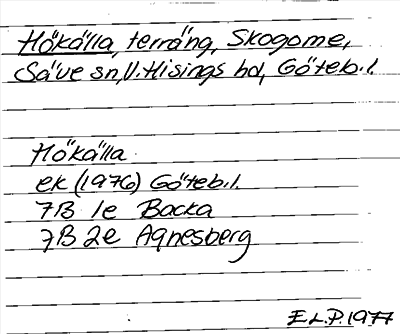 Hökälla, terräng, Skogome,
Säve sn, V. Hisings hd, Göteb. l.
Hökälla
ek (1976) Göteb. l.
7B 1e Backa
7B 2e Agnesberg
E L.P. 1977